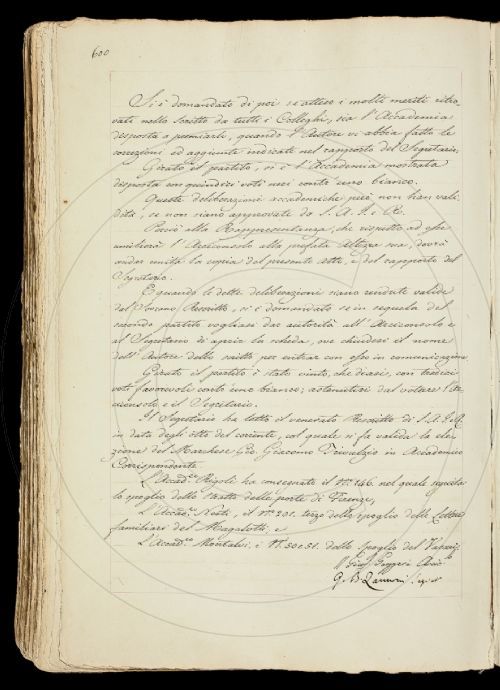 600
Si è domandato di poi se attesi i molti meriti ritro-
vati nello scritto da tutti i Colleghi, sia l'Accademia
disposta a premiarlo, quando l'Autore vi abbia fatto le
correzioni ed aggiunte indicate nel rapporto del Segretario.
Girato il partito, si è l'Accademia mostrata
disposta con quindici voti neri contro uno bianco.
Queste deliberazioni accademiche però non han vali
dità, se non siano approvate da S. A. I. e R.
Perciò alla Rappresentanza, che rispetto ad esse
umilierà l'Arciconsolo alla prefata Altezza sua, dovrà
andar unita la copia del presente atto, e del rapporto del
Segretario.
E quando le dette deliberazioni siano rendute valide
dal Sovrano Rescritto, si è domandato se in sequela del
secondo partito vogliasi dar autorità all'Arciconsolo e
al Segretario di aprir la scheda, ove chiudesi il nome
dell'Autore dello scritto per entrar con esso in comunicazione
Girato il partito è stato vinto, che diasi, con tredici
voti favorevoli contro uno bianco; astenutisi dal votare l'Ar-
ciconsolo e il Segretario.
Il Segretario ha letto il venerato Rescritto di S. A. I. e R.
in data degli otto del corrente, col quale si fa valida la ele-
zione del Marchese Gio. Giacomo Trivulzio in Accademico
Corrispondente.
L'Accad.co Rigoli ha consegnato il N.º 146. nel quale seguita
lo spoglio dello tratto delle porte di Firenze,
L'Accad.co Nesti, il N.º 201. terzo dello spoglio delle Lettere
familiari del Magalotti, e
L'Accad.co Montalvi, i N.i 50 e 51. dello spoglio del
G. B. Zannoni Seg.